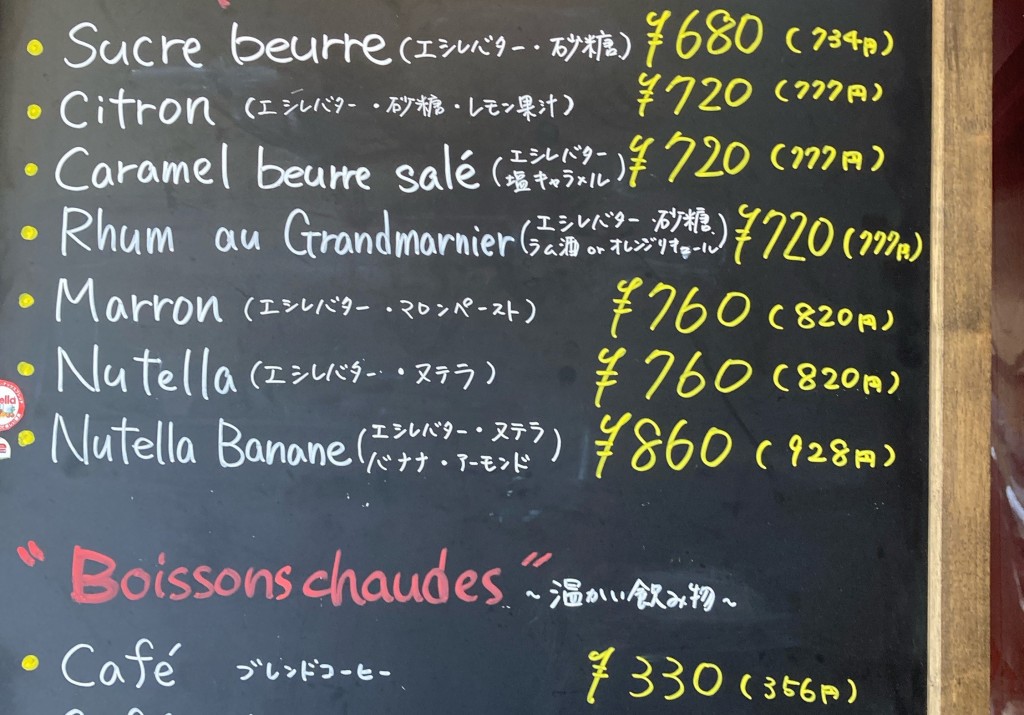 • Sucre beurre (エシレバター・砂糖) ¥680 (734円)
• Citron (エシレバター・砂糖・レモン果汁) ¥720 (777円)
• Caramel beurre salé (エシレバター 塩キャラメル) ¥720 (777円)
• Rhum au Grandmarnier (エシレバター 砂糖 ラム酒 or オレンジリキュール) ¥720 (777円)
• Marron (エシレバター・マロンペースト) ¥760 (820円)
• Nutella (エシレバター・ヌテラ) ¥760 (820円)
• Nutella Banane (エシレバター・ヌテラ バナナ・アーモンド) ¥860 (928円)
"Boissons chaudes" ~温かい飲み物~
• Café ブレンドコーヒー ¥330 (356円)